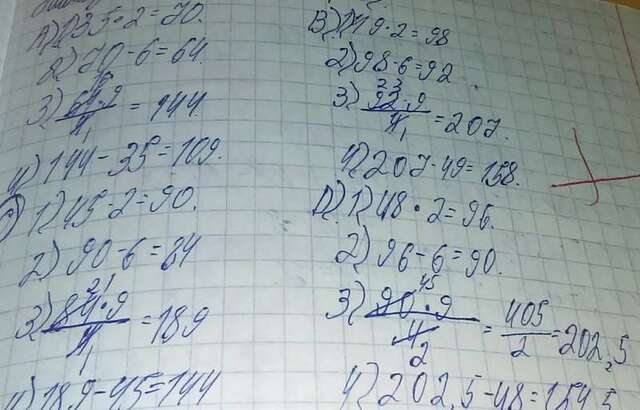 А) 1) 35·2=70.
2) 70-6=64.
3) 64·9/4 = 144.
4) 144-35=109.
1) 45·2=90.
2) 90-6=84
3) 84·9/4 = 189
4) 189-45=144
В) 1) 49·2=98
2) 98-6=92
3) 92·9/4 = 207.
4) 207-49=158.
D) 1) 48·2=96.
2) 96-6=90.
3) 90·9/4 = 405/2 = 202,5
4) 202,5-48=154,5